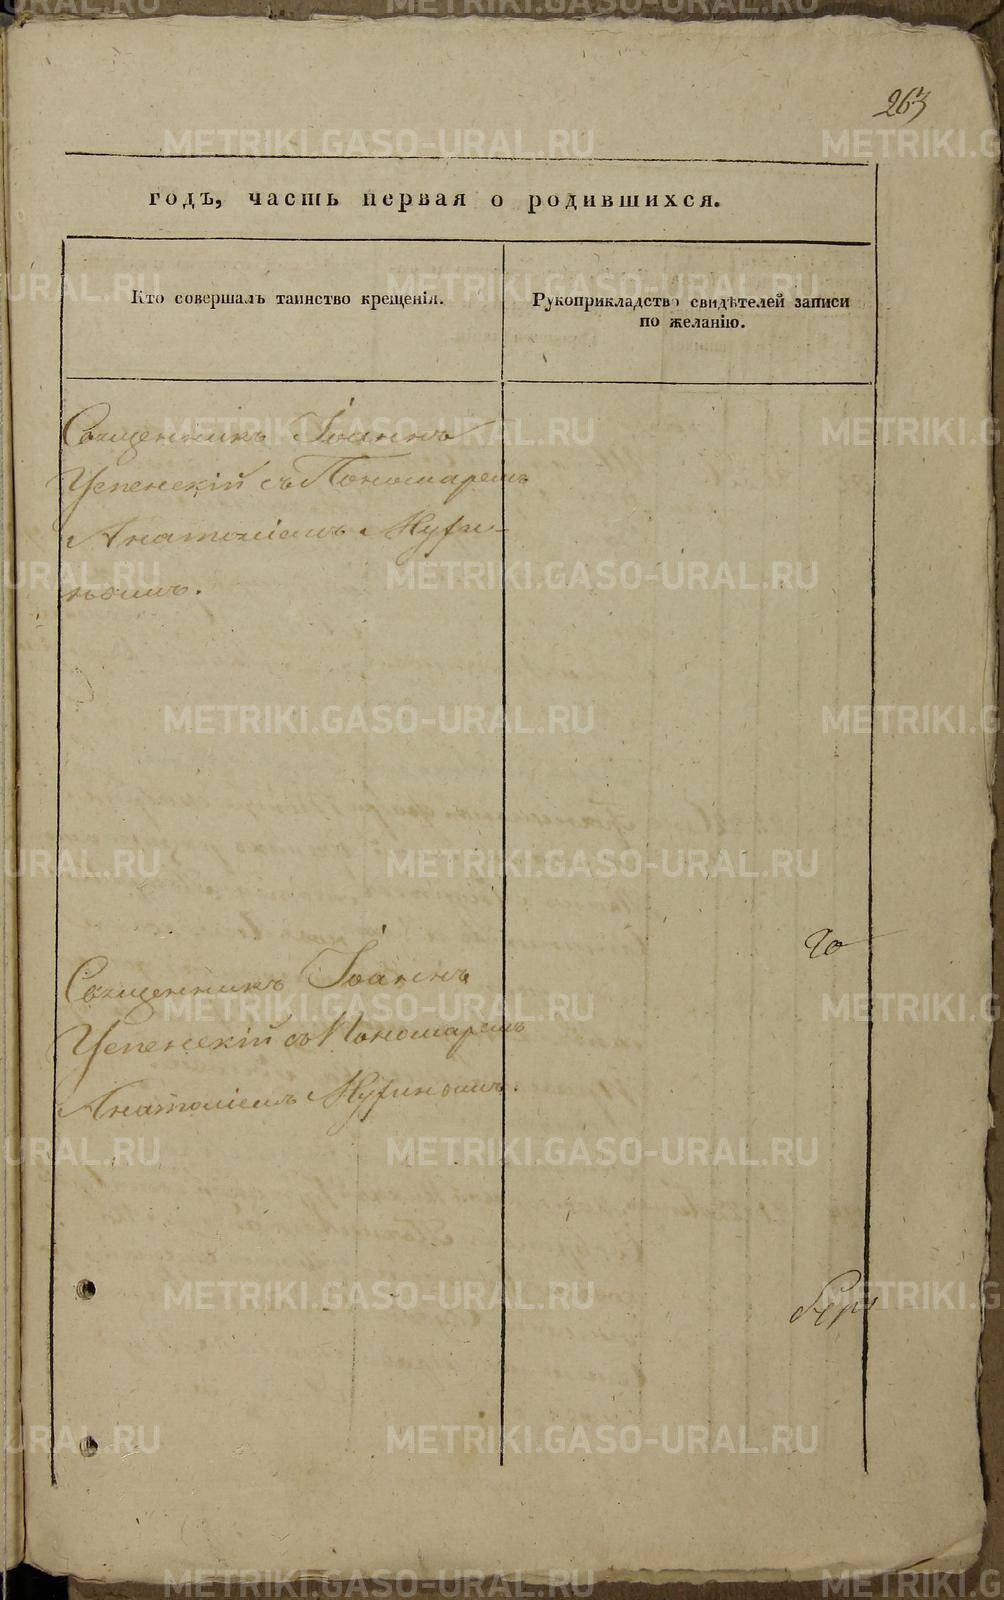 263
годъ, часть первая о родившихся.
Кто совершалъ таинство крещенія.
Рукоприкладство свидѣтелей записи
по желанію.
Священникъ Іоаннъ
Успенскій съ Пономаремъ
Анатоліемъ
Священникъ Іоаннъ
Успенскій съ Пономаремъ
Анатоліемъ
METRIKI.GASO-URAL.RU